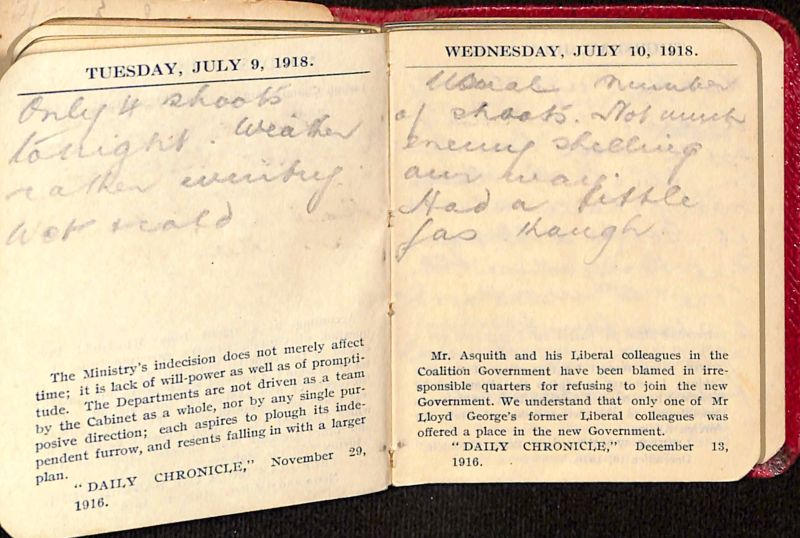 TUESDAY, JULY 9, 1918.
Only 4 shoots
tonight. Weather
rather wintry.
Wet & cold
The Ministry's indecision does not merely affect
time; it is lack of will-power as well as of prompti-
tude. The Departments are not driven as a team
by the Cabinet as a whole, nor by any single pur-
posive direction; each aspires to plough its inde-
pendent furrow, and resents falling in with a larger
plan.
"DAILY CHRONICLE," November 29,
1916.
WEDNESDAY, JULY 10, 1918.
Usual number
of shoots. Not much
enemy shelling
our way.
Had a little
gas though.
Mr. Asquith and his Liberal colleagues in the
Coalition Government have been blamed in irre-
sponsible quarters for refusing to join the new
Government. We understand that only one of Mr
Lloyd George's former Liberal colleagues was
offered a place in the new Government.
"DAILY CHRONICLE," December 13,
1916.